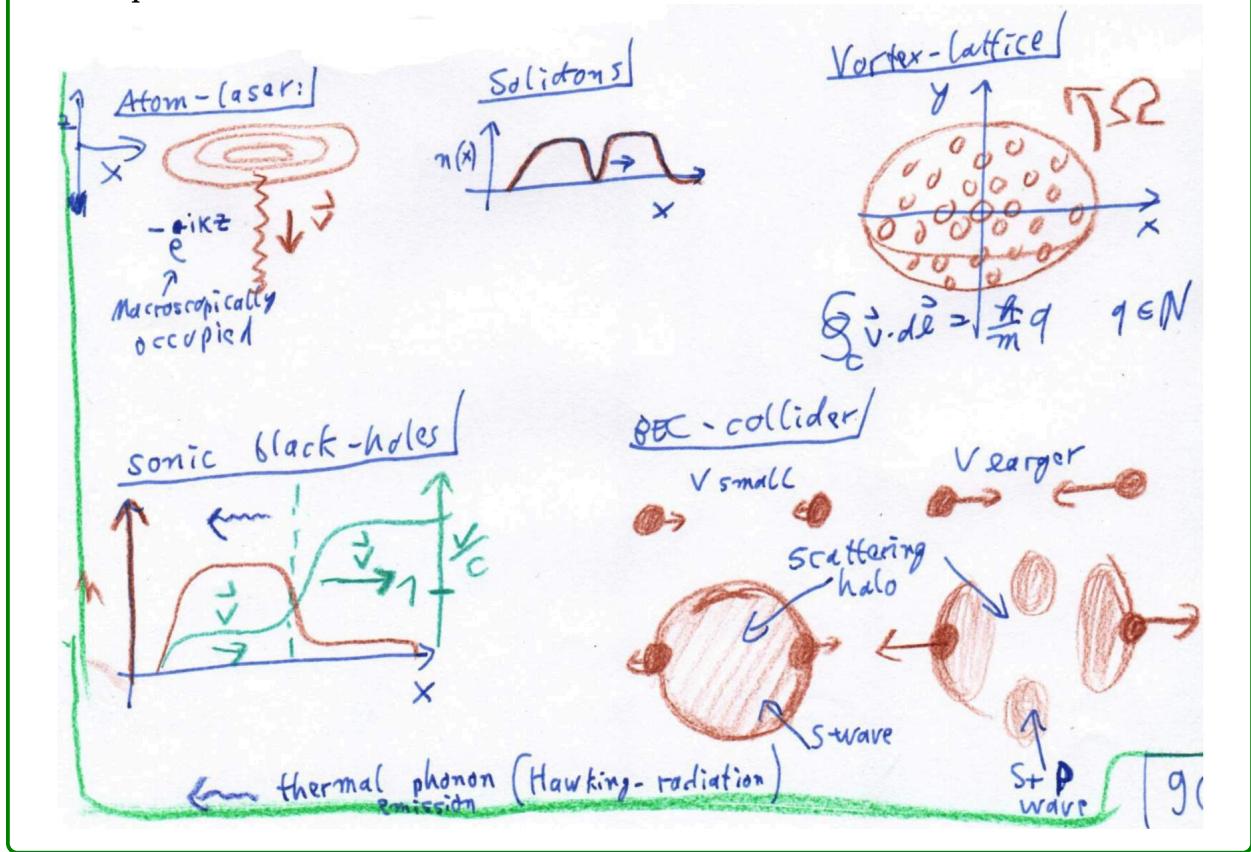 Atom-laser:
z
x
e^-ikz
v⃗
Macroscopically
occupied
Solidons
n(x)
x
Vortex-lattice
y
Ω
x
∮_C v⃗·dl⃗ = h/m q q ∈ ℕ
sonic black-holes
v⃗
v⃗
v/c
1
x
BEC-collider
v small
v larger
Scattering
halo
S-wave
S+P
wave
thermal phonon (Hawking-radiation)
emission